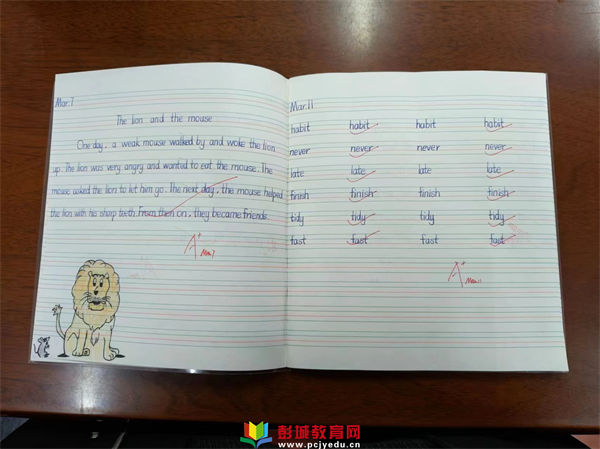 Mar.7
The lion and the mouse
One day, a weak mouse walked by and woke the lion
up. The lion was very angry and wanted to eat the mouse. The
mouse asked the lion to let him go. The next day, the mouse helped
the lion with his sharp teeth. From then on, they became friends.
A+
Mar.7
Mar.11
habit habit habit habit
never never never never
late late late late
finish finish finish finish
tidy tidy tidy tidy
fast fast fast fast
A+
Mar.11
彭城教育网
www.pcjyedu.cn